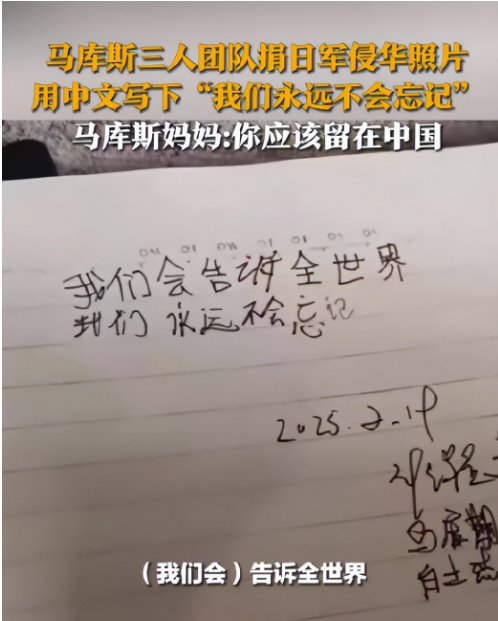 马库斯三人团队捐日军侵华照片
用中文写下“我们永远不会忘记”
马库斯妈妈:你应该留在中国
我们会告诉全世界
我们永远不会忘记
2025.2.19
马库斯
（我们会）告诉全世界